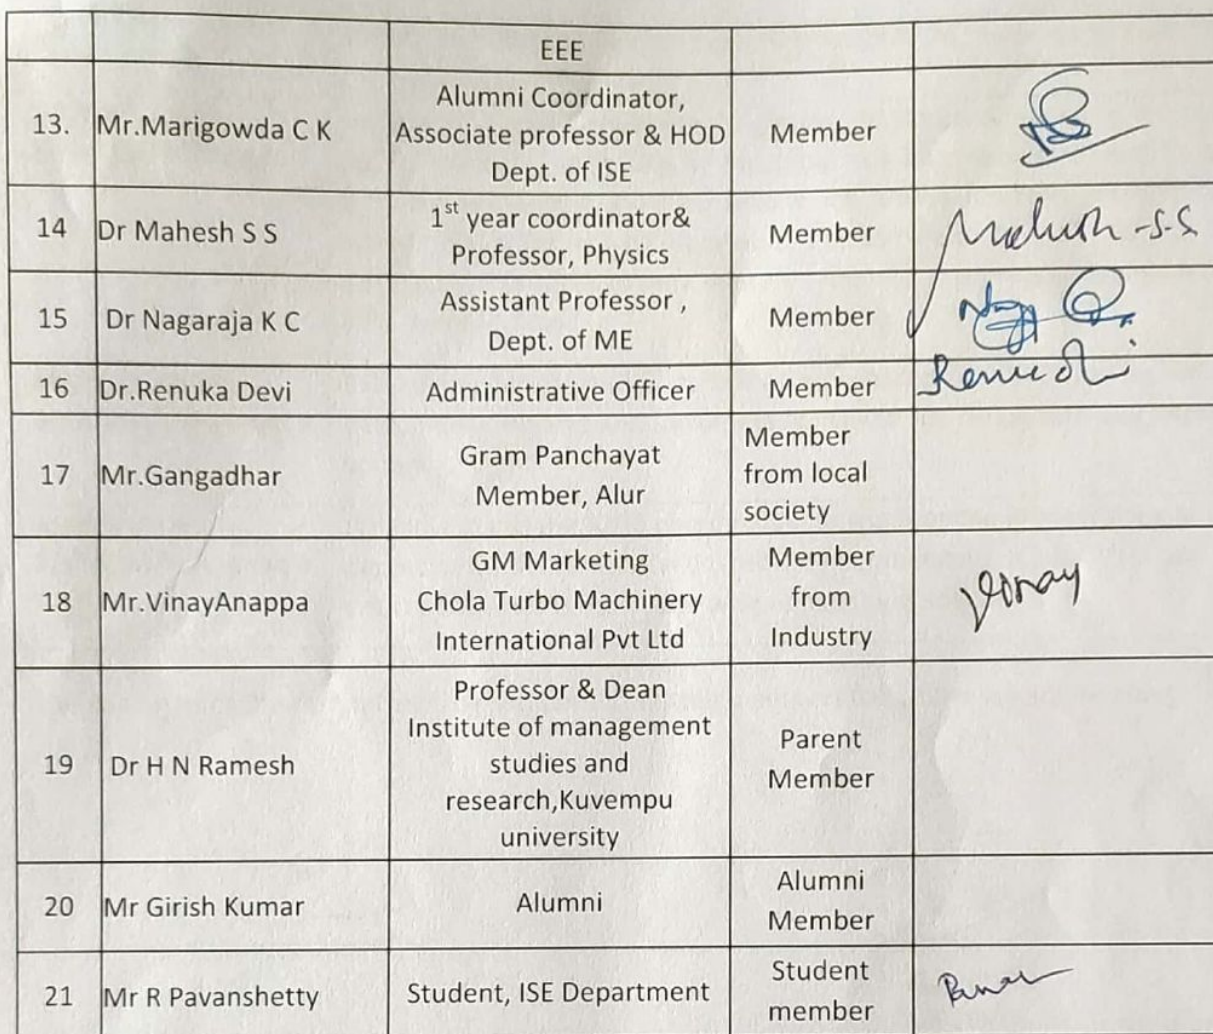 EEE
13. Mr.Marigowda C K Alumni Coordinator, Associate professor & HOD Dept. of ISE Member
14 Dr Mahesh S S 1st year coordinator& Professor, Physics Member Mahesh -S.S
15 Dr Nagaraja K C Assistant Professor , Dept. of ME Member
16 Dr.Renuka Devi Administrative Officer Member
17 Mr.Gangadhar Gram Panchayat Member, Alur Member from local society
18 Mr.VinayAnappa GM Marketing Chola Turbo Machinery International Pvt Ltd Member from Industry Vinay
19 Dr H N Ramesh Professor & Dean Institute of management studies and research,Kuvempu university Parent Member
20 Mr Girish Kumar Alumni Alumni Member
21 Mr R Pavanshetty Student, ISE Department Student member